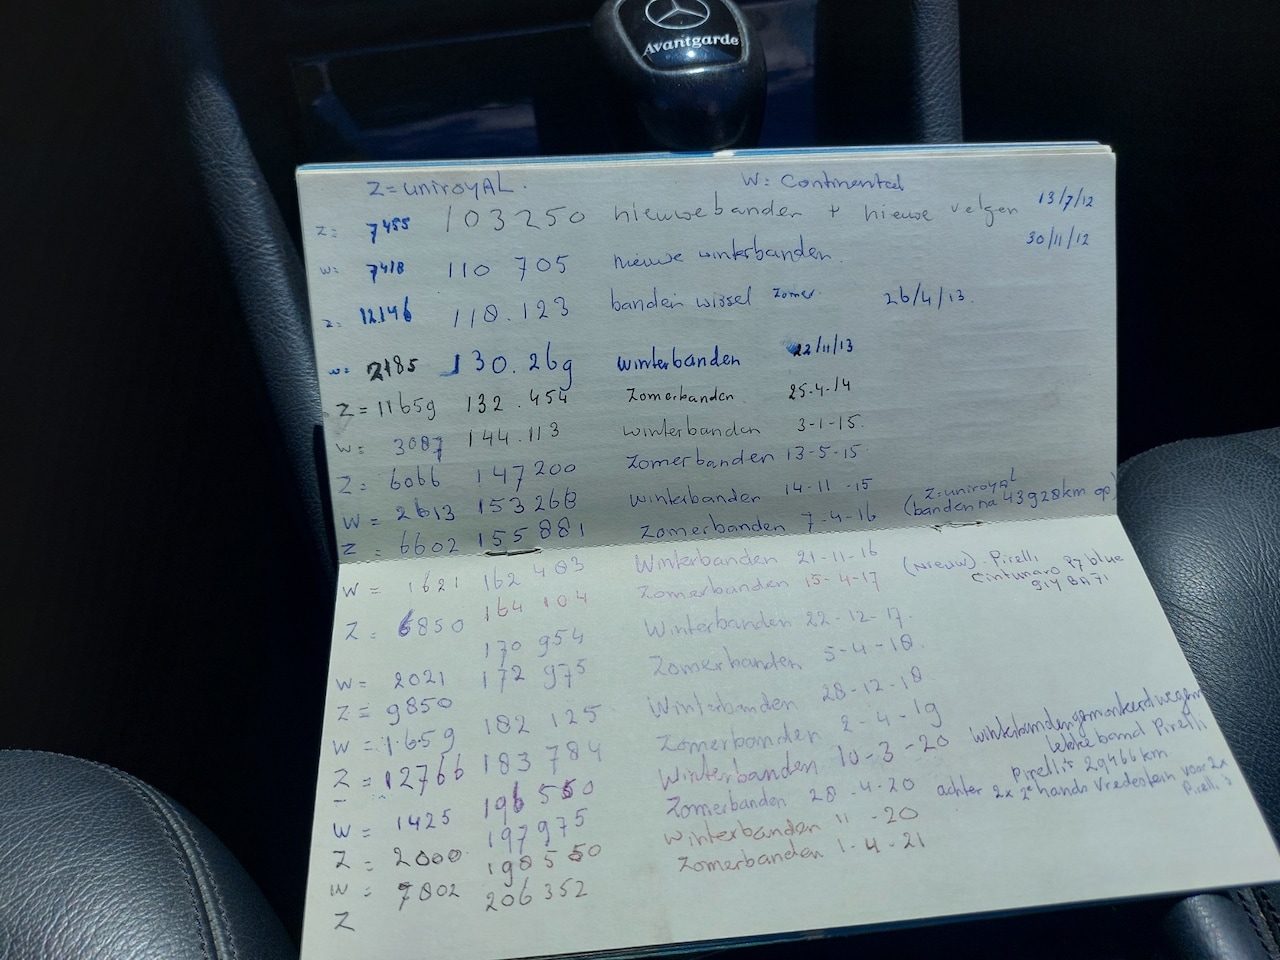 Avantgarde
Z = uniroyAL. W: Continental
Z: 7455 103250 nieuwe banden + nieuwe velgen 13/7/12
W: 7418 110 705 nieuwe winterbanden. 30/11/12
Z: 12146 118.123 banden wissel zomer. 26/4/13.
W: 2185 130.269 winterbanden 22/11/13
Z = 11659 132.454 Zomerbanden 25-4-14
W: 3087 144.113 winterbanden 3-1-15.
Z = 6066 147200 Zomerbanden 13-5-15
W = 2613 153268 winterbanden 14-11-15
Z = 6602 155881 Zomerbanden 7-4-16 Z=uniroyal (banden na 43928km op)
W = 1621 162 483 Winterbanden 21-11-16
Z = 6850 164 104 Zomerbanden 15-4-17 (Nieuw). Pirelli Cinturato P7 blue
170 954 Winterbanden 22-12-17.
W = 2021 172 975 Zomerbanden 5-4-18.
Z = 9850 Winterbanden 28-12-18
W = 1.659 182 125 Zomerbanden 2-4-19
Z = 12766 183 784 Winterbanden 10-3-20 winterbanden gemonteerd wegens lekke band Pirelli
196 550 Zomerbanden 28-4-20 Pirelli's 29466 km. achter 2x 2e hands Vredestein voor 2x Pirelli's
W = 1425 197975 winterbanden 11-20
Z = 2000 198550 Zomerbanden 1.4.21
W = 7802 206352
Z